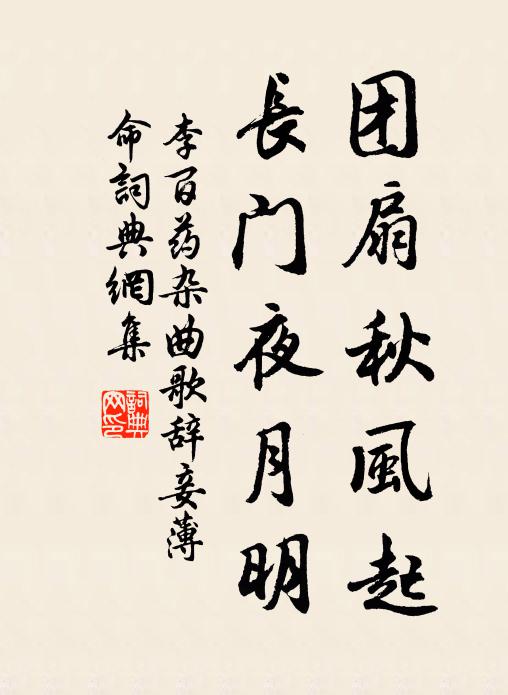 团扇秋風起
長门夜月明
李百药杂曲歌辞妾薄
命詞典網集
詞典
网印